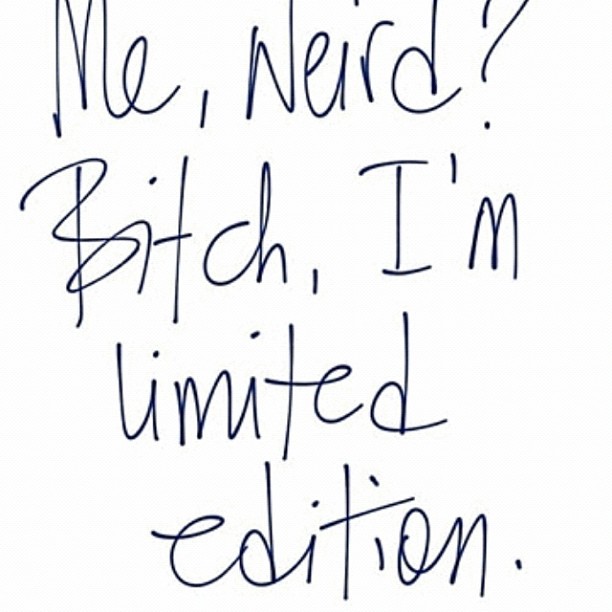 Me, Weird?
Bitch, I'm
limited
edition.